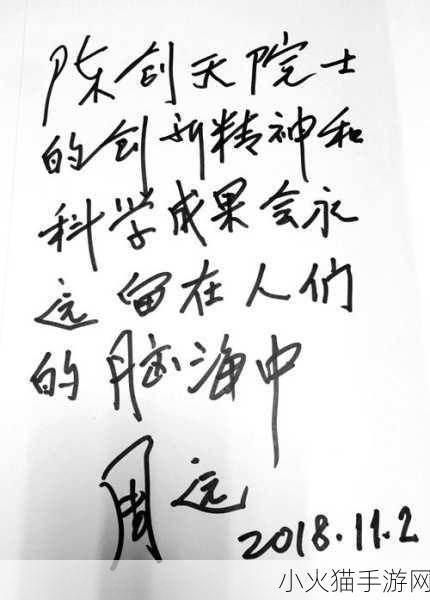 陈创天院士
的创新精神和
科学成果会永
远留在人们
的脑海中
周远
2018.11.2
小火猫手游网